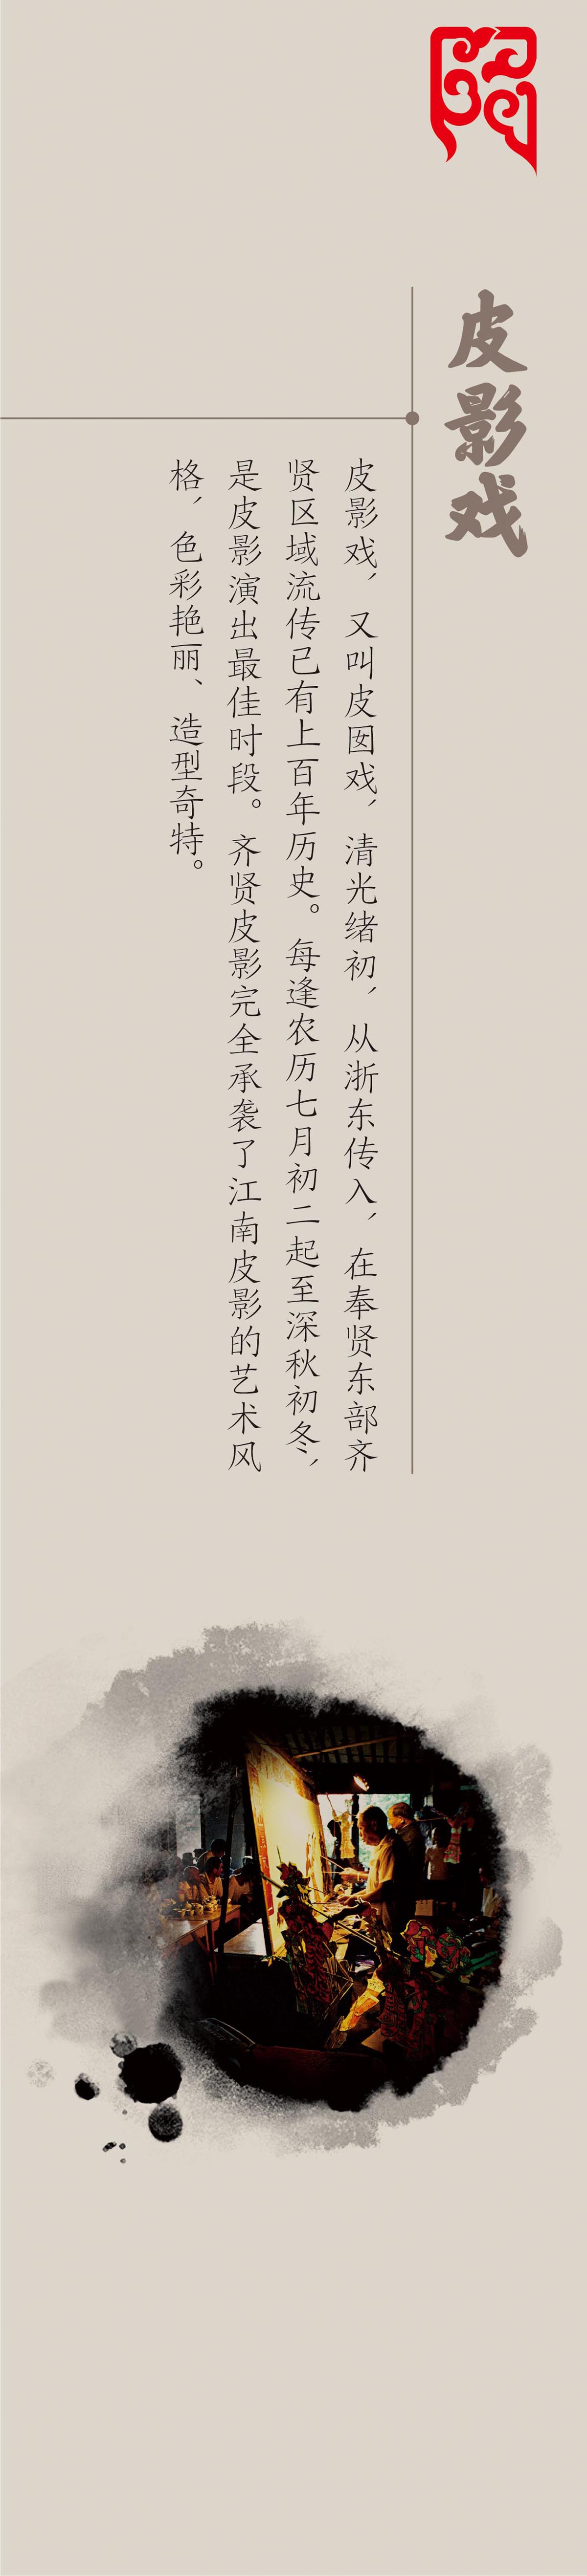 皮影戏
皮影戏，又叫皮囡戏，清光绪初，从浙东传入，在奉贤东部齐
贤区域流传已有上百年历史。每逢农历七月初二起至深秋初冬，
是皮影演出最佳时段。齐贤皮影完全承袭了江南皮影的艺术风
格，色彩艳丽、造型奇特。